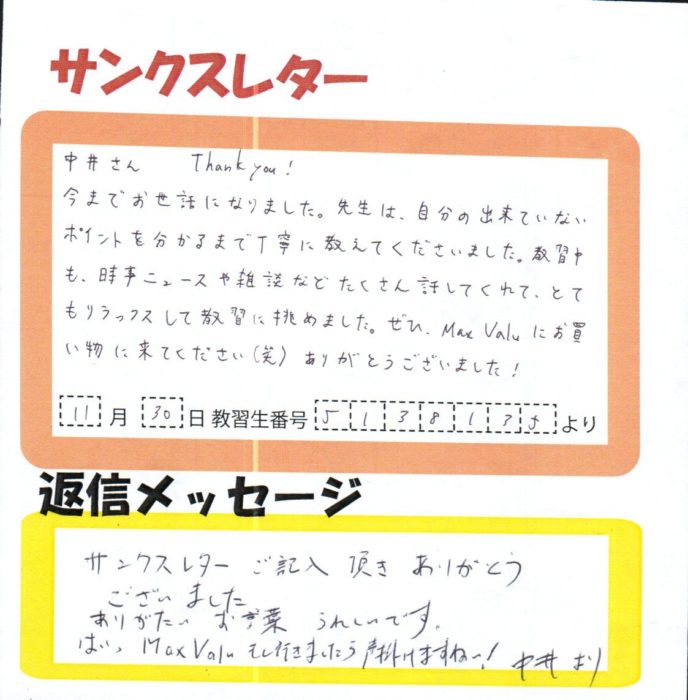 サンクスレター
中井さん Thank you!
今までお世話になりました。先生は、自分の出来ていない
ポイントを分かるまで丁寧に教えてくださいました。教習中
も、時事ニュースや雑談などたくさん話してくれて、とて
もリラックスして教習に挑めました。ぜひ、Max Valuにお買
い物に来てください(笑) ありがとうございました!
11月30日 教習生番号 5138135より
返信メッセージ
サンクスレター ご記入 頂き ありがとう
ございました
ありがたい お言葉 うれしいです。
はいっ MaxValu もし行きましたら声掛けますねー! 中井より